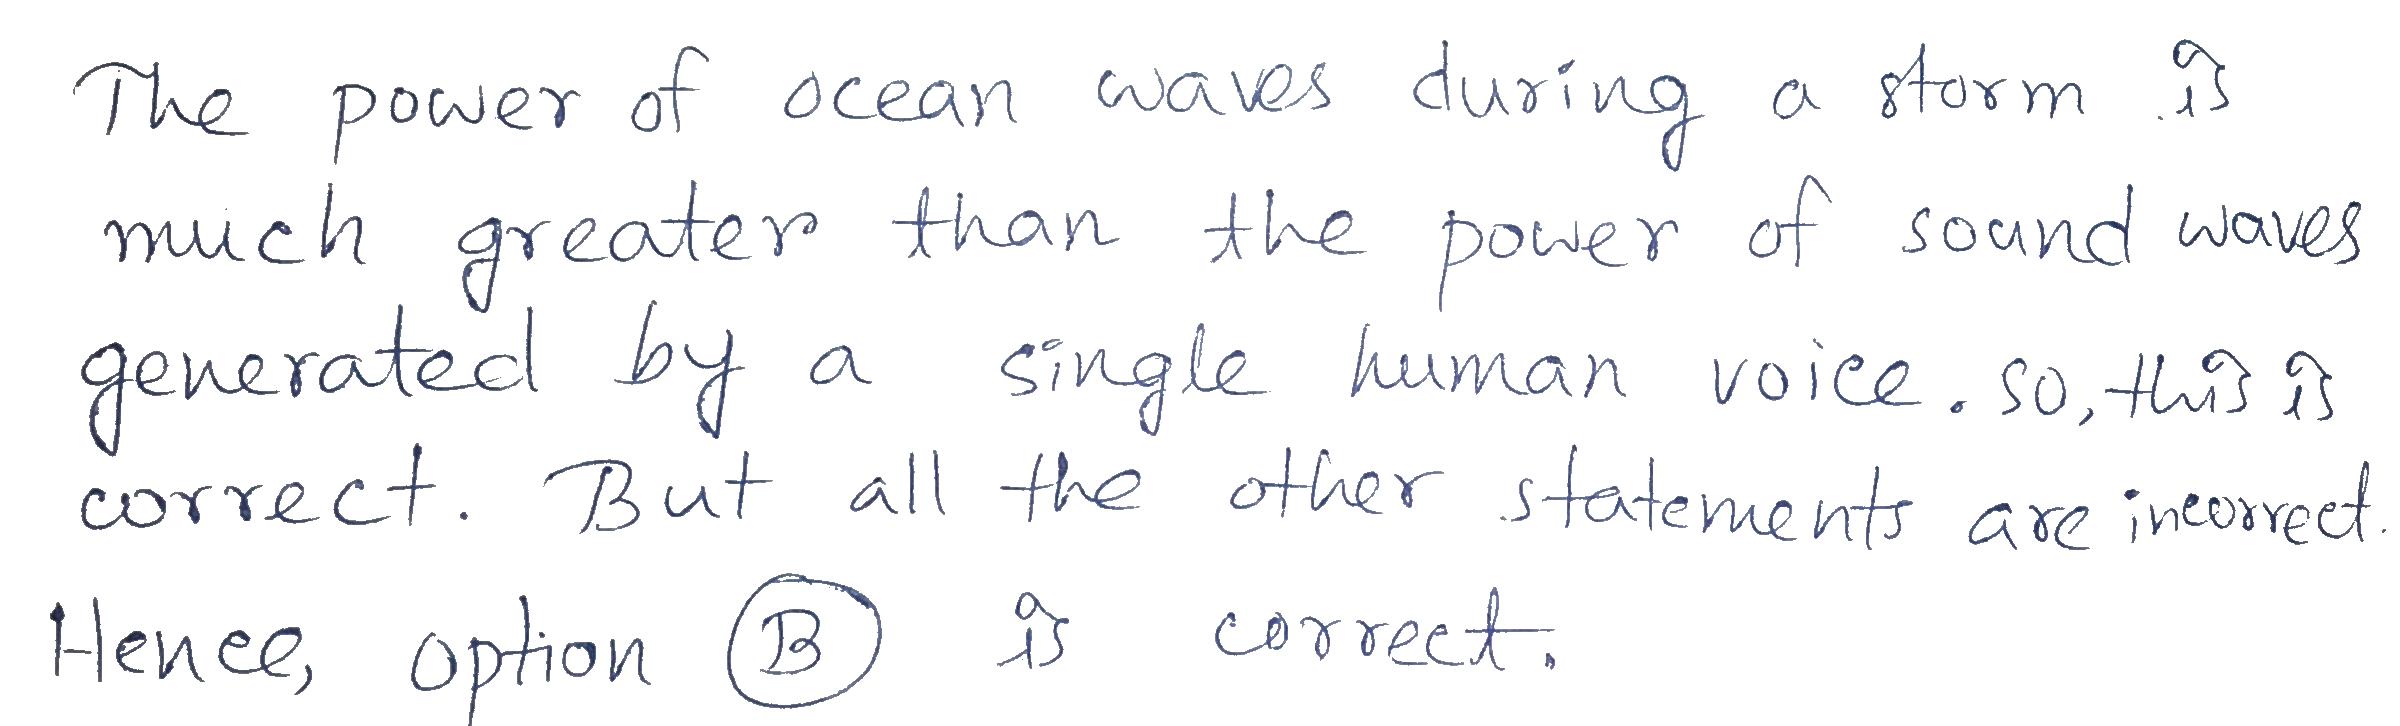 The power of ocean waves during a storm is
much greater than the power of sound waves
generated by a single human voice. so, this is
correct. But all the other statements are incorrect.
Hence, option B is correct.